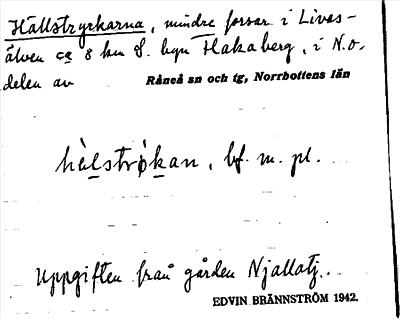 Hällstryckarna, mindre forsar i Livas-
älven ca 8 km S. byn Flakaberg, i N.O.
delen av Råneå sn och tg, Norrbottens län
hèlstrøkan, bf. m. pl.
Uppgiften från gården Njallatj..
EDVIN BRÄNNSTRÖM 1942.